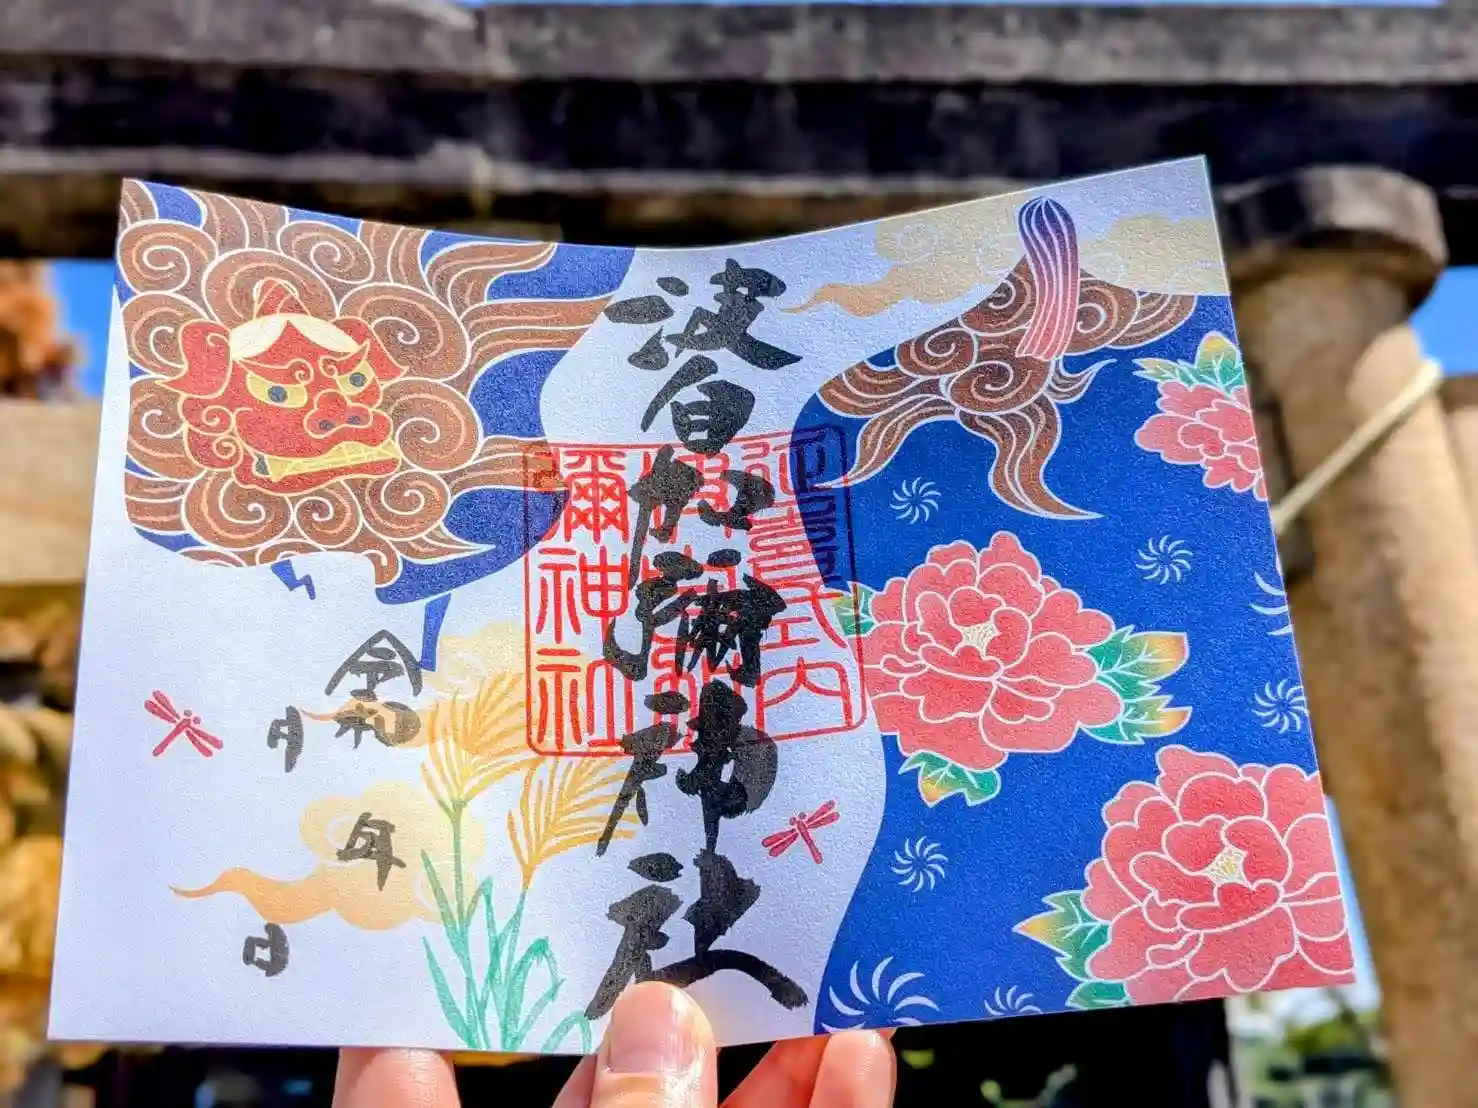 波自加彌神社
延喜式内
波自加
彌神社
令和
年
月
日